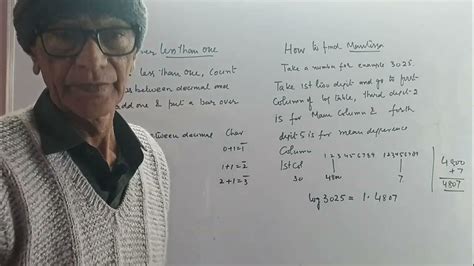 over less Than one
less Than one, count
os between decimal and
add one & put a bar over
between decimal Char
0+1=1̅
1+1=2̅
2+1=3̅
How to find Mantissa
Take a number for example 3025.
Take 1st two digit and go to first
Column of log table, third digit 2
is for Main Column & forth
digit 5 is for mean difference
Column 1 2 3 4 5 6 7 8 9 1 2 3 4 5 6 7 8 9
1st Col
30 4800 7
log 3025 = 1.4807
4800
+ 7
4807